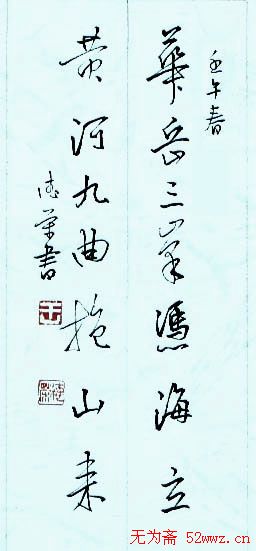 壬午春
華岳三峯憑海立
黄河九曲抱山来
書
王
无为斋 52wwz.cn